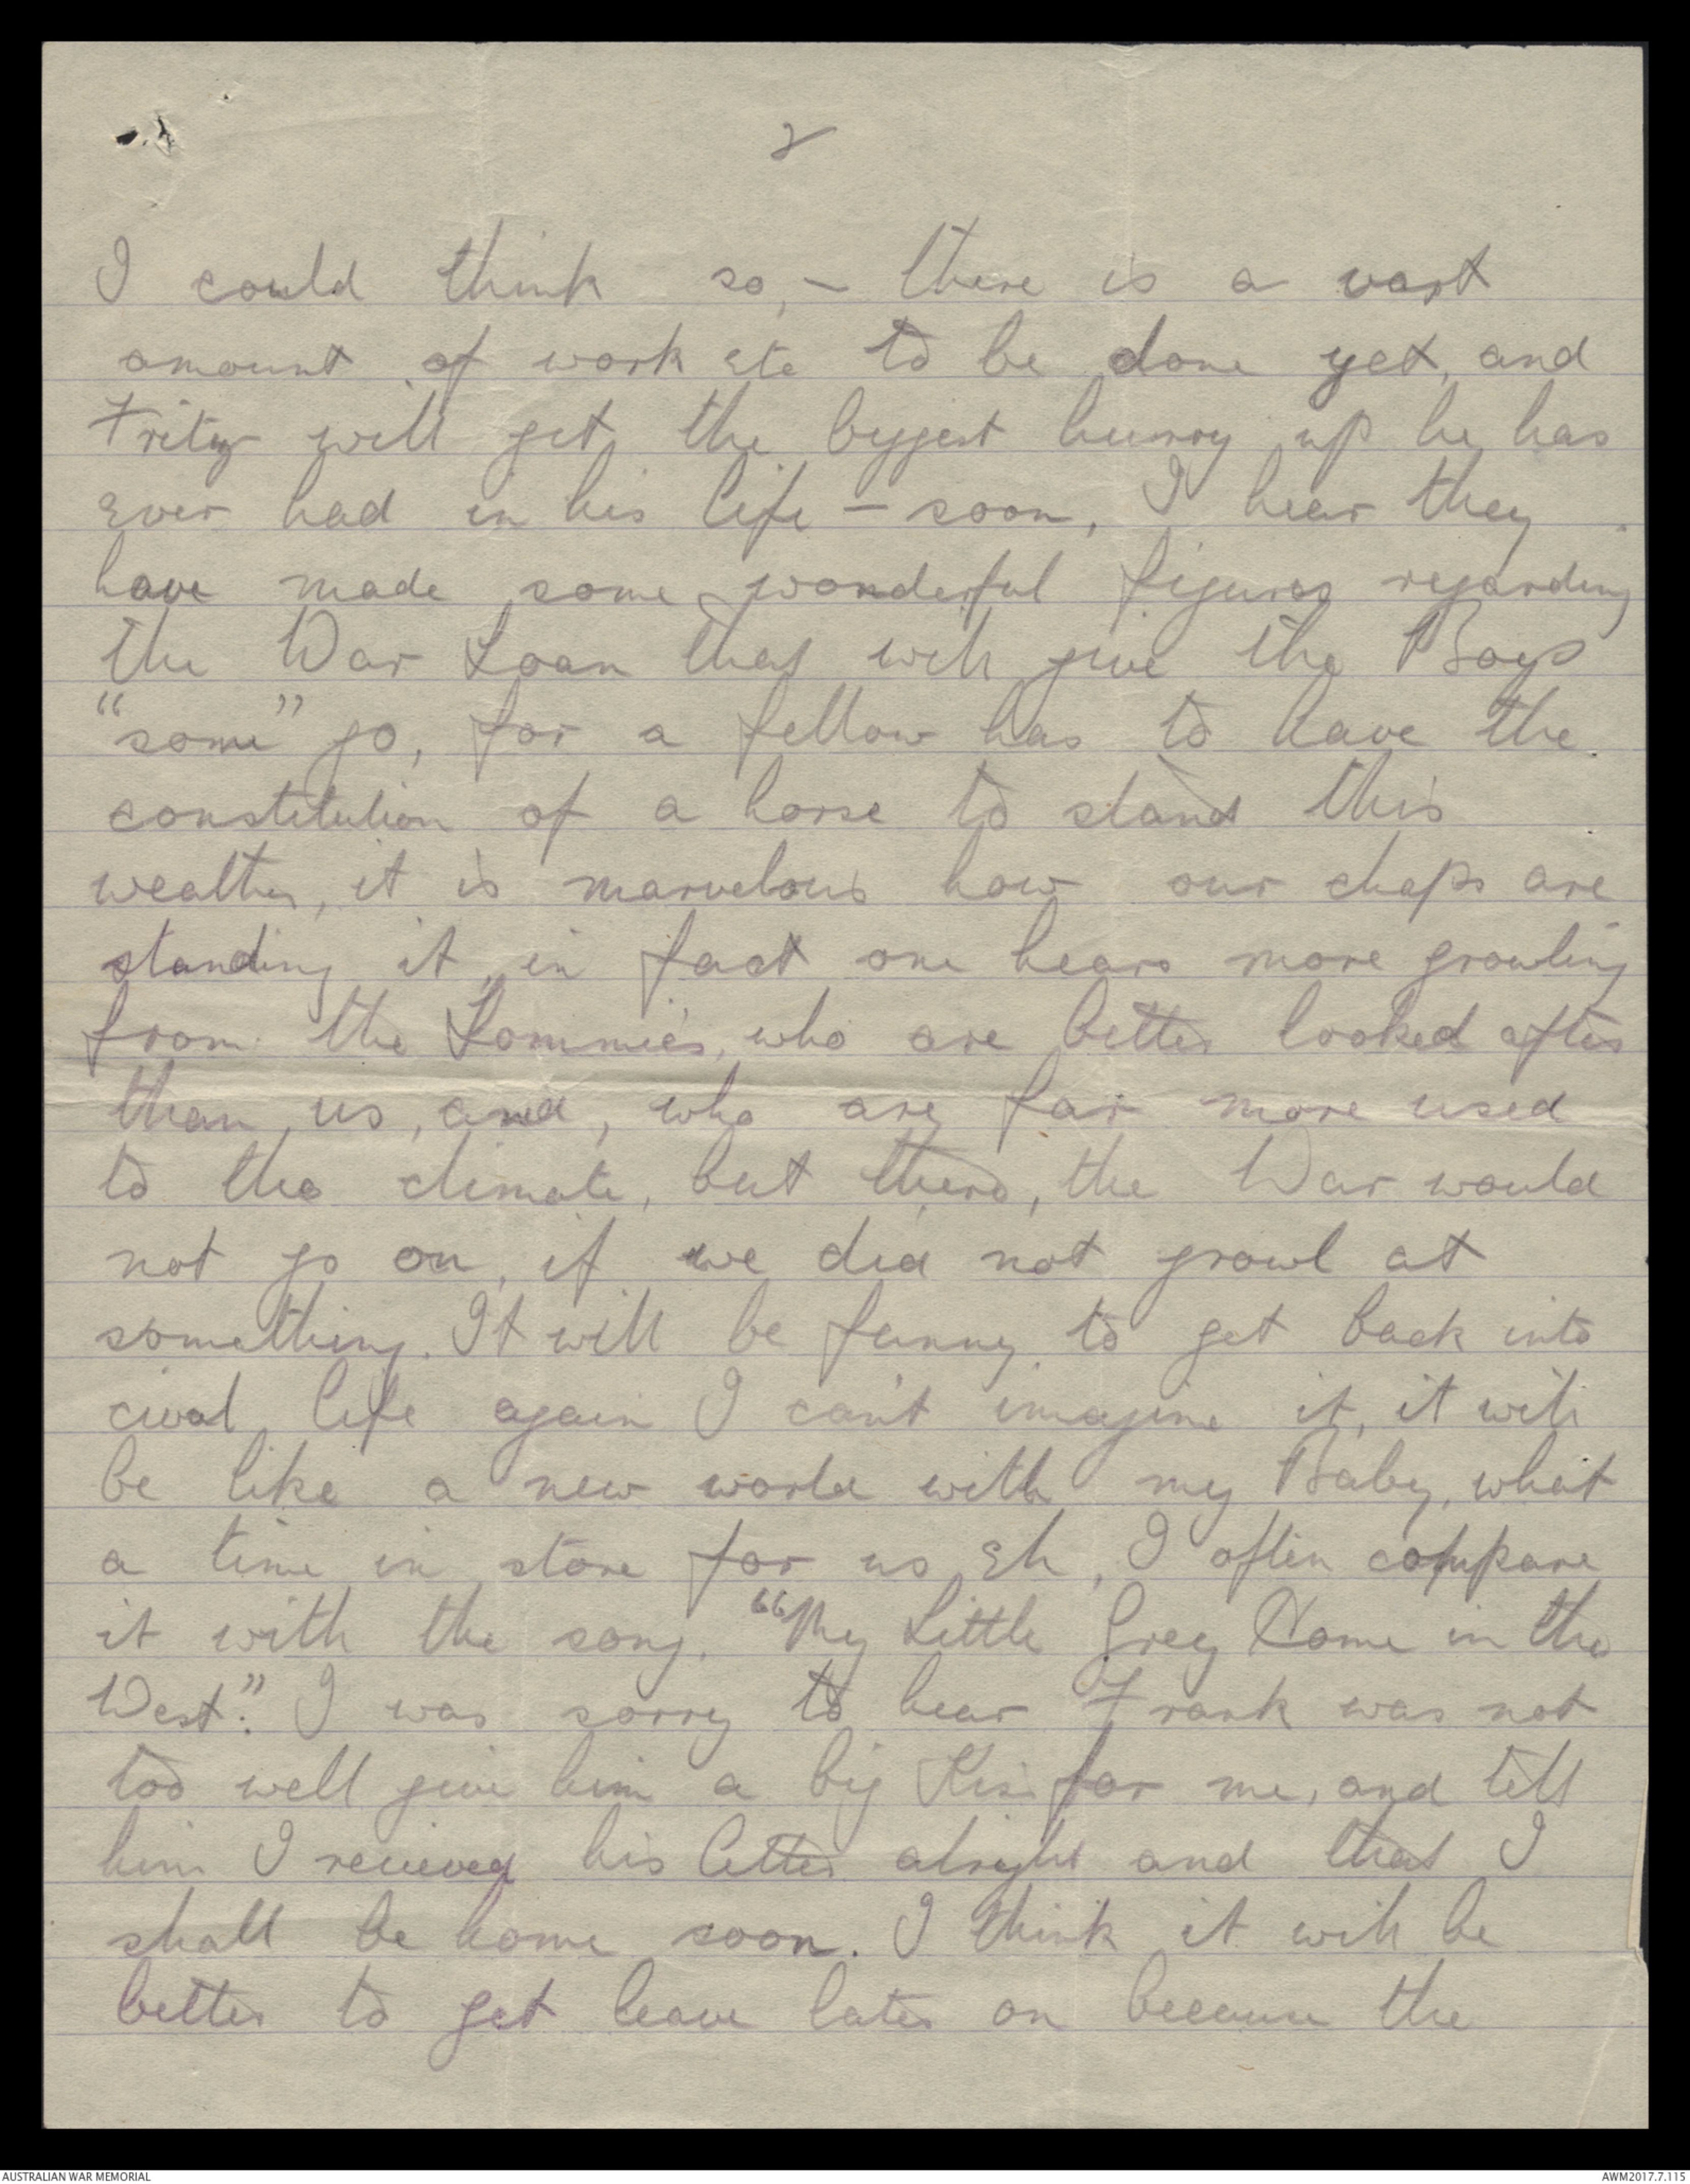 2
I could think so, - there is a vast
amount of work etc to be done yet, and
Fritz will get the biggest hurry up he has
ever had in his life - soon, I hear they
have made some wonderful figures regarding
the War Loan that will give the Boys
"some" go, for a fellow has to have the
constitution of a horse to stand this
weather, it is marvelous how our chaps are
standing it, in fact one hears more growling
from the Tommies, who are better looked after
than us, and, who are far more used
to the climate, but there, the War would
not go on, if we did not growl at
something. It will be funny to get back into
cival life again I can't imagine it, it will
be like a new world with my Baby, what
a time in store for us Eh, I often compare
it with the song. "My Little Grey Home in the
West". I was sorry to hear Frank was not
too well give him a big Kiss for me, and tell
him I recieved his letter alright and that I
shall be home soon. I think it will be
better to get leave later on because the
AUSTRALIAN WAR MEMORIAL
AWM2017.7.115